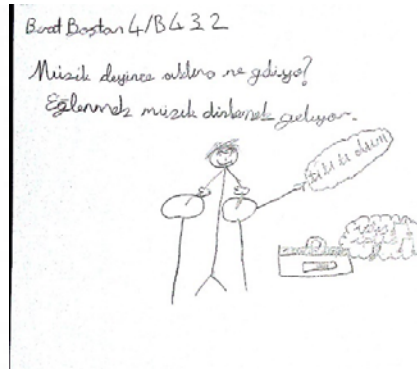 Berat Bostan 4/B 432
Müzik deyince aklına ne geliyo?
Eğlenmek müzik dinlemek geliyor.